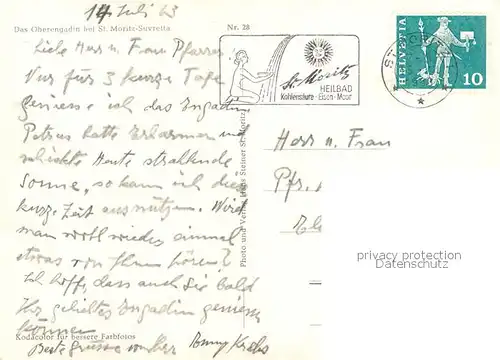 14. Juli 63
Das Oberengadin bei St. Moritz-Suvretta
Nr. 28
Liebe Herr u. Frau Pfarrer
Nur für 3 kurze Tage
geniesse ich das Engadin
Petrus hatte Erbarmen und
schickte Heute strahlende
Sonne, so kann ich die
kurze Zeit ausnützen. Wird
man wohl wieder einmal
etwas von Ihnen hören?
Ich hoffe, dass auch Sie bald
Ihr geliebtes Engadin geniessen
können
Kodacolor für bessere Farbfotos
Beste Grüsse von Ihrer
Photo und Verlag Hans Steiner St. Moritz
St. Moritz
HEILBAD
Kohlensäure-Eisen-Moor
HELVETIA
10
Herr u. Frau
Pfr.
privacy protection
Datenschutz